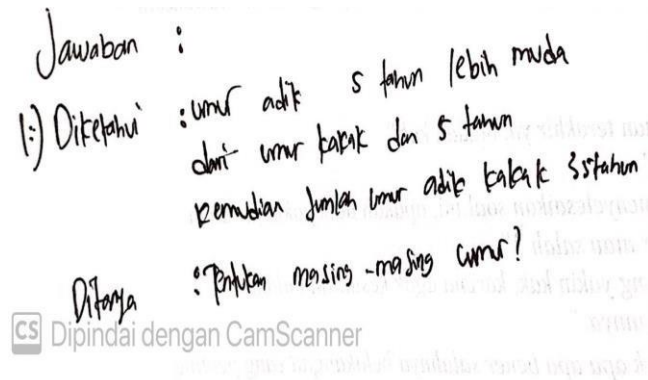 Jawaban :
1.) Diketahui : umur adik 5 tahun lebih muda
dari umur kakak dan 5 tahun
kemudian jumlah umur adik kakak 35 tahun
Ditanya : Tentukan masing-masing umur?
CS Dipindai dengan CamScanner